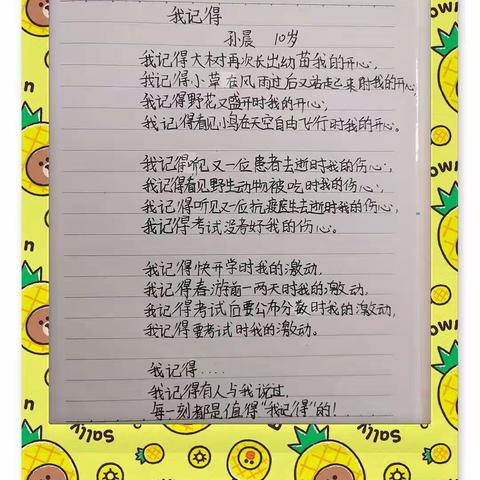 我记得
孙晨 10岁
我记得大树再次长出幼苗我的开心,
我记得小草在风雨过后又站起来时我的开心
我记得野花又盛开时我的开心,
我记得看见小鸟在天空自由飞行时我的开心。
我记得听见又一位患者去逝时我的伤心,
我记得看见野生动物被吃时我的伤心,
我记得听见又一位抗疫医生去逝时我的伤心,
我记得考试没考好我的伤心。
我记得快开学时我的激动,
我记得春游前一两天时我的激动,
我记得考试后要公布分数时我的激动,
我记得要考试时我的激动。
我记得....
我记得有人与我说过,
每一刻都是值得"我记得"的!
Sally